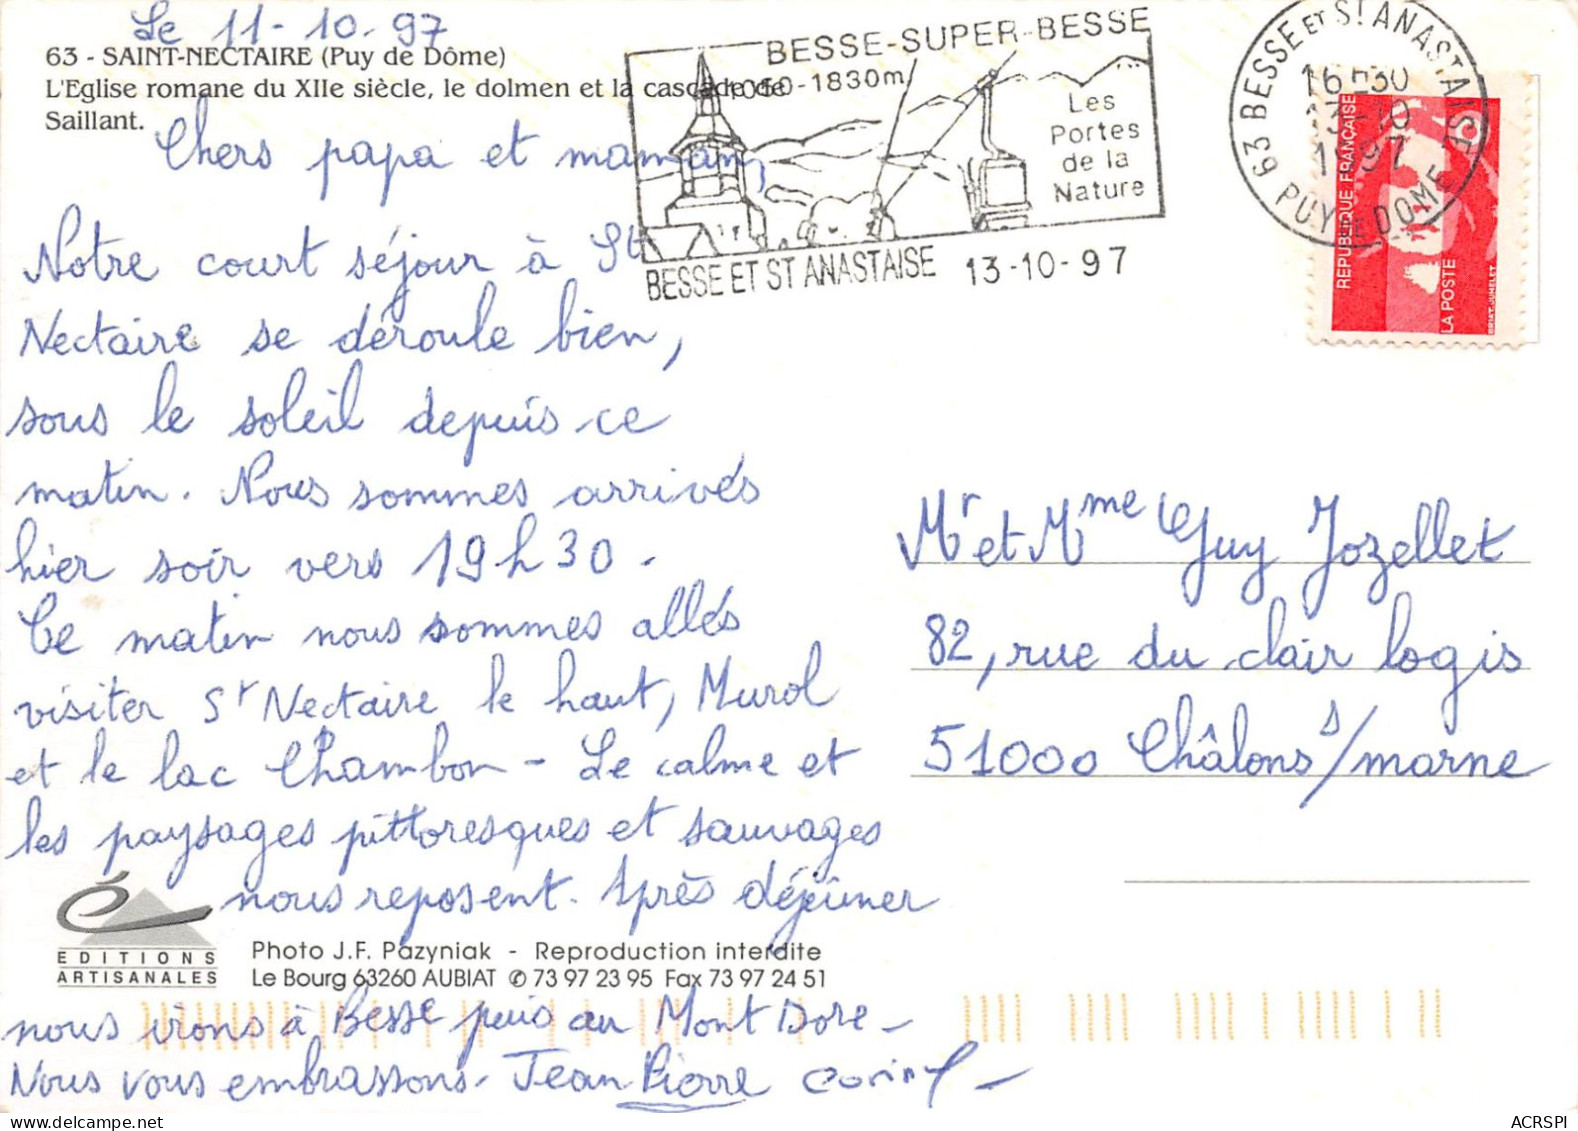 Le 11-10.97
63 - SAINT-NECTAIRE (Puy de Dôme)
L'Eglise romane du XIIe siècle, le dolmen et la cascade de
Saillant.
Chers papa et maman,
Notre court séjour à St
Nectaire se déroule bien,
sous le soleil depuis ce
matin. Nous sommes arrivés
hier soir vers 19h30.
Ce matin nous sommes allés
visiter St Nectaire le haut, Murol
et le lac Chambon - Le calme et
les paysages pittoresques et sauvages
nous reposent. Après déjeuner
EDITIONS
ARTISANALES
Photo J.F. Pazyniak - Reproduction interdite
Le Bourg 63260 AUBIAT ✆ 73 97 23 95 Fax 73 97 24 51
nous irons à Besse puis au Mont Dore -
Nous vous embrassons. Jean Pierre
BESSE-SUPER-BESSE
1050-1830m
Les
Portes
de la
Nature
BESSE ET ST ANASTAISE 13-10-97
63 BESSE ET ST ANASTAISE
16H30
13-10
1997
PUY DE DOME
REPUBLIQUE FRANÇAISE
LA POSTE
BRIAT-JUMELET
Mr et Mme Guy Jozellet
82, rue du clair logis
51000 Châlons s/marne
ACRSPI